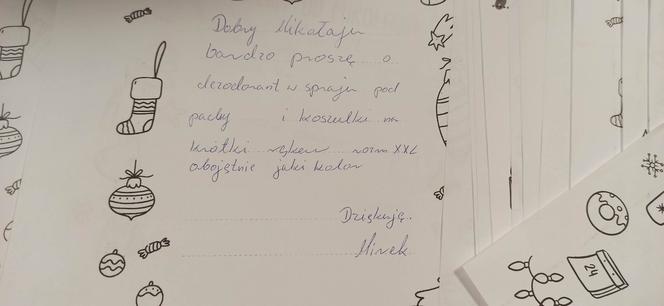 Dobry Mikołaju
bardzo proszę o
dezodorant w spraju pod
pachy i koszulki na
krótki rękaw rozm XXL
obojętnie jaki kolor
Dziękuję.
Mirek
24